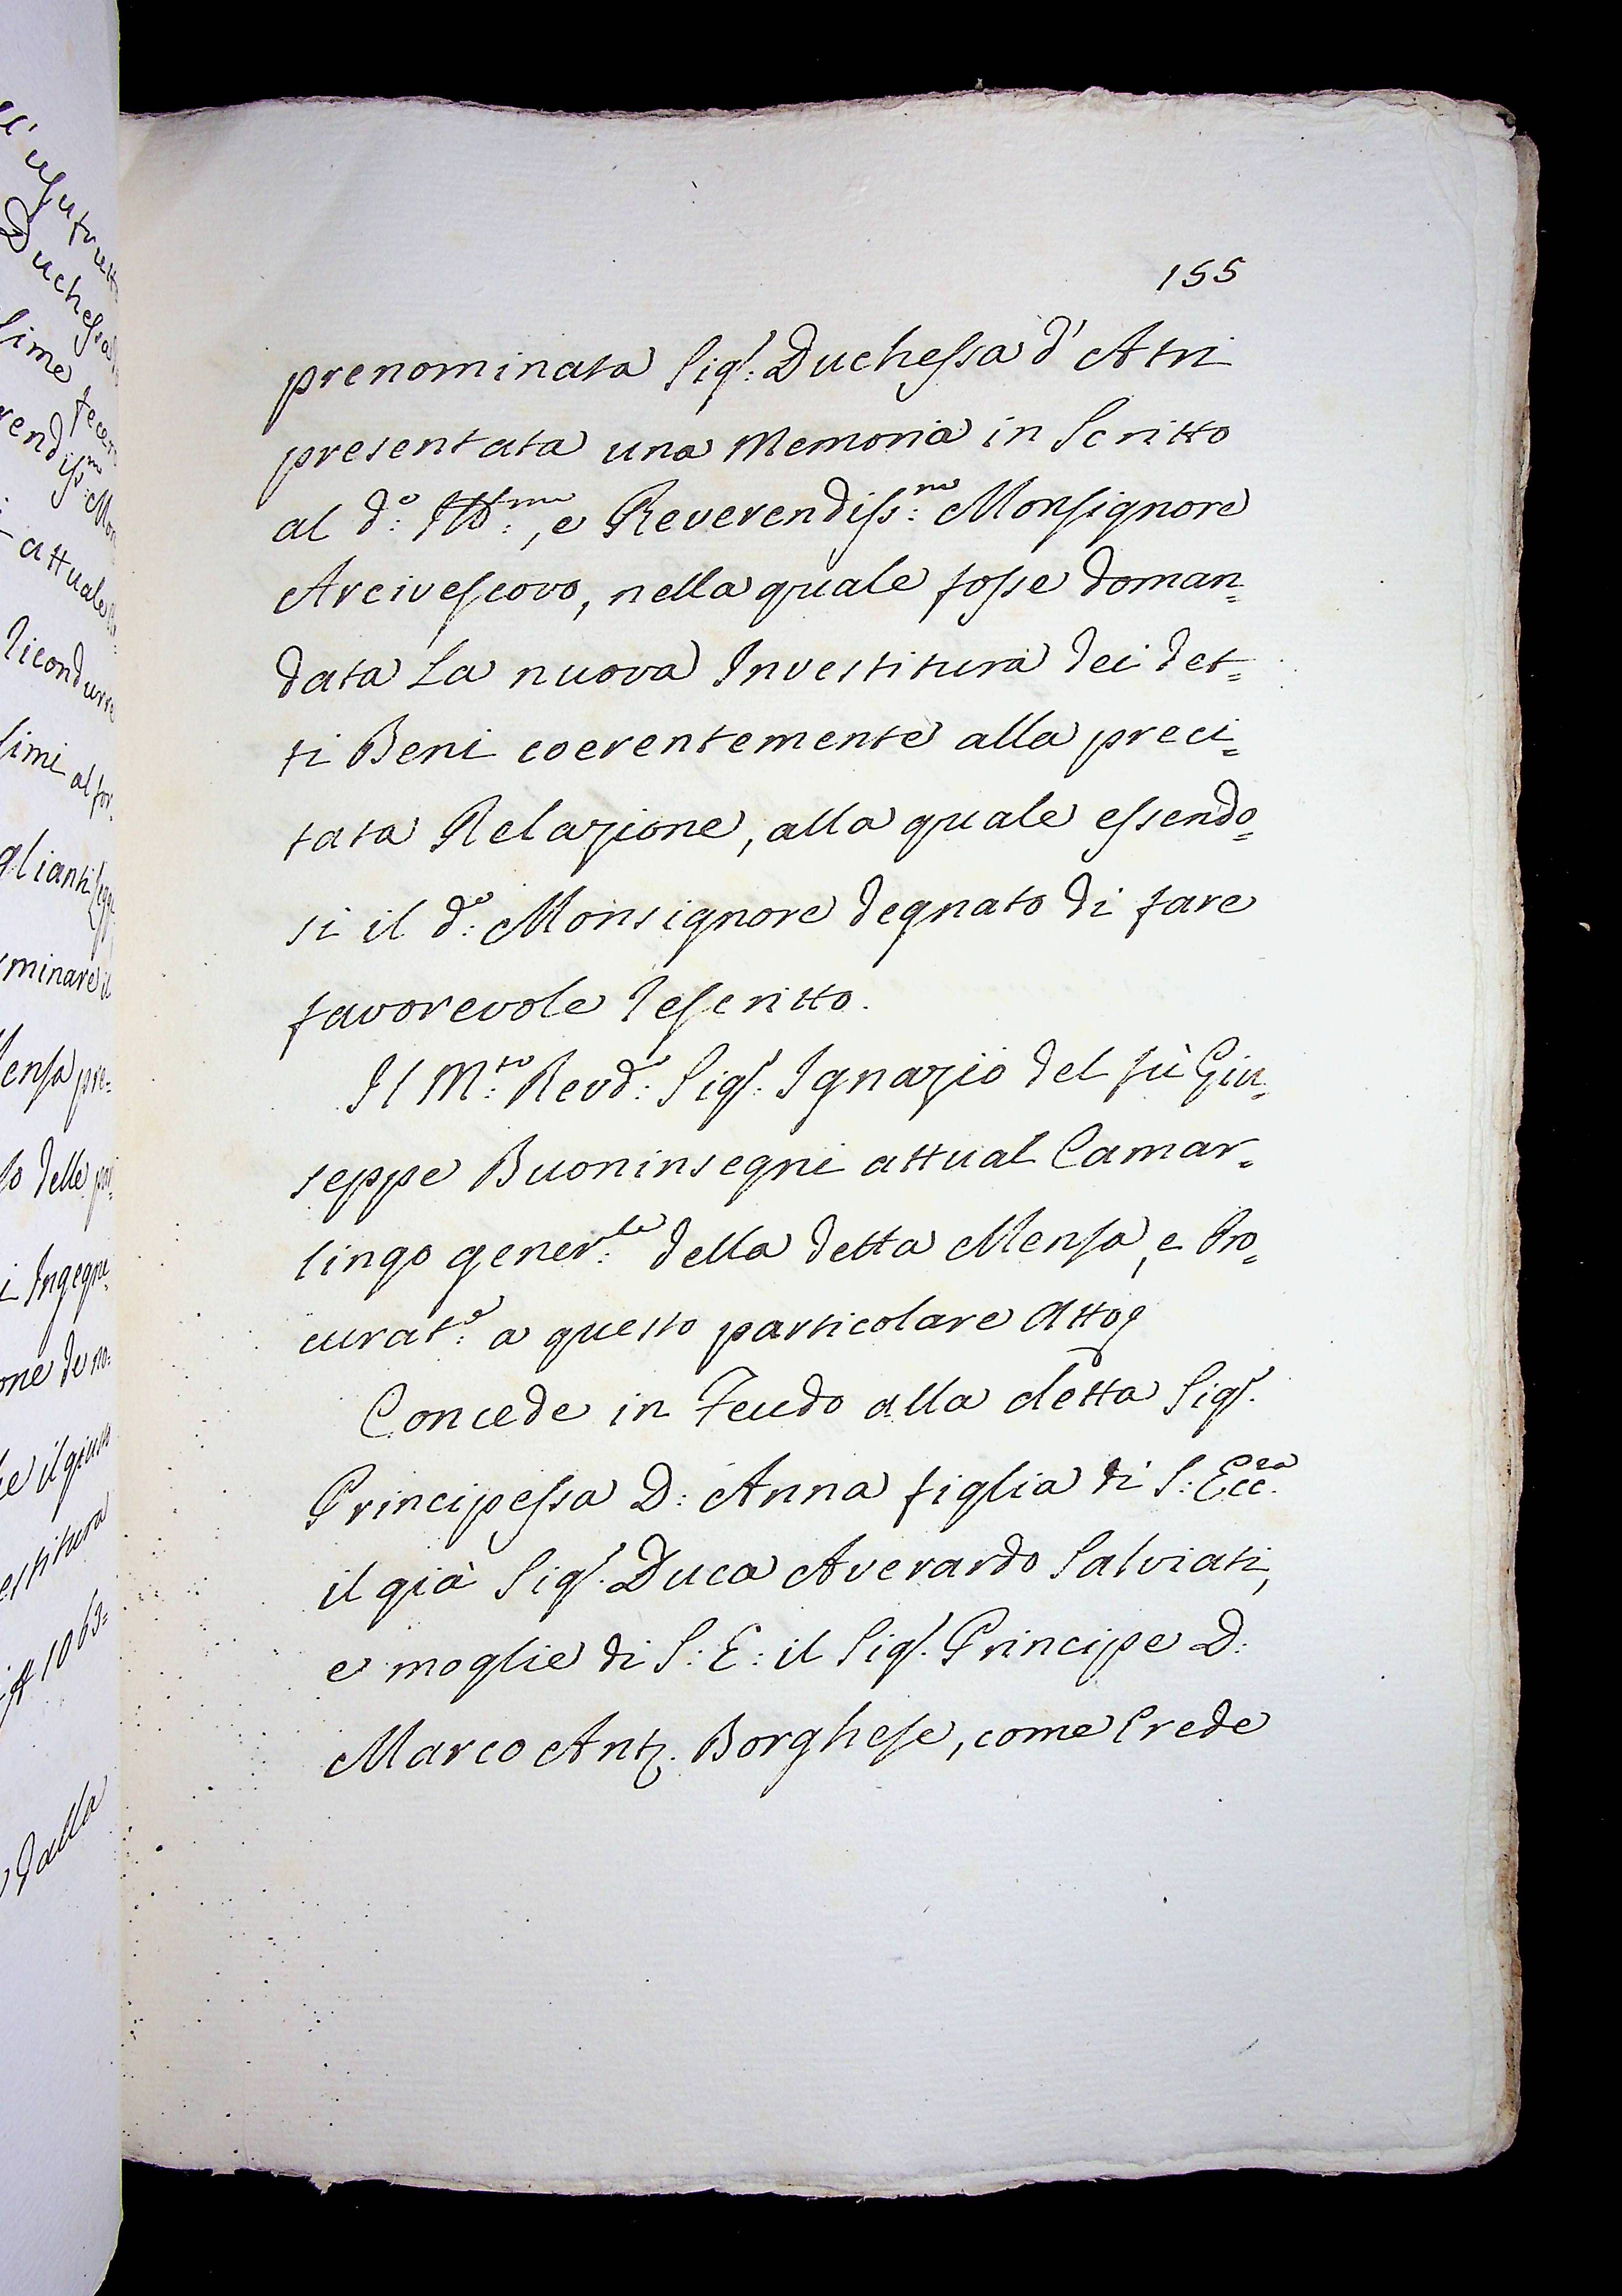 155
prenominata Sigr. Duchessa d'Atri
presentata una Memoria in Scritto
al d:o Ill:mo, e Reverendiss:mo Monsignore
Arcivescovo, nella quale fosse doman=
data La nuova Investitura dei det=
ti Beni coerentemente alla preci=
tata Relazione, alla quale essendo=
si il d:o Monsignore degnato di fare
favorevole rescritto.
Il M:to Revd:o Sigr. Ignazio del fù Giu=
seppe Buoninsegni attual Camar=
lingo gener:le della detta Mensa, e Pro=
curat:e a questo particolare Atto
Concede in Feudo alla detta Sigr.
Principessa D: Anna figlia di S: Ecc:za
il già Sigr. Duca Averardo Salviati,
e moglie di S: E: il Sigr. Principe D:
Marco Ant. Borghese, come Crede
Duchessa
attuale
ricondurre
simi al for
gli anti
minare il
Mensa pre=
so delle
i Ingegne
one de no=
he il giusto
estitura
1063=
Dalla